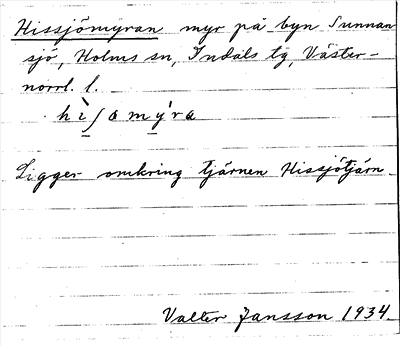 Hissjömyran myr på byn Sunnan
sjö, Holms sn, Indals tg, Väster-
norrl. l.
hìʃamýra
Ligger omkring tjärnen Hissjötjärn.
Valter Jansson 1934.